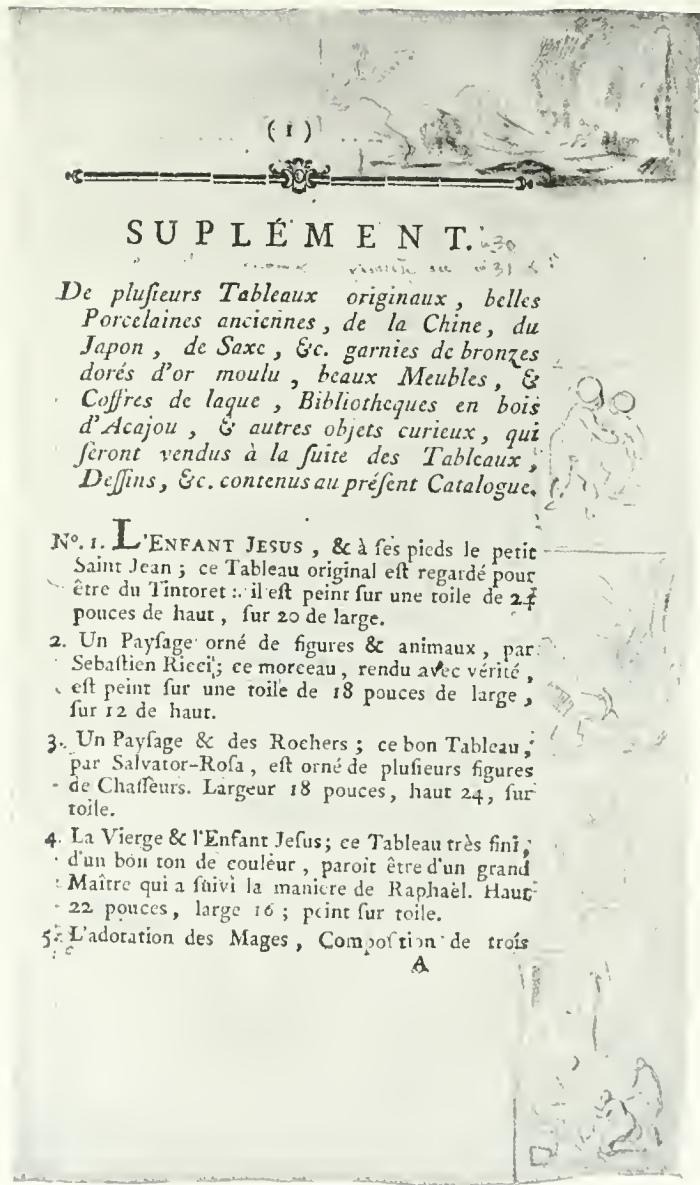 ( 1 )
SUPLÉMENT.
De pluſieurs Tableaux originaux, belles
Porcelaines anciennes, de la Chine, du
Japon, de Saxe, &c. garnies de bronzes
dorés d'or moulu, beaux Meubles, &
Coffres de laque, Bibliotheques en bois
d'Acajou, & autres objets curieux, qui
ſeront vendus à la ſuite des Tableaux,
Deſſins, &c. contenus au préſent Catalogue.
N°. 1. L'ENFANT JESUS, & à ſes pieds le petit
Saint Jean; ce Tableau original eſt regardé pour
être du Tintoret: il eſt peint ſur une toile de
pouces de haut, ſur 20 de large.
2. Un Payſage orné de figures & animaux, par
Sebaſtien Ricci; ce morceau, rendu avec vérité,
eſt peint ſur une toile de 18 pouces de large,
ſur 12 de haut.
3. Un Payſage & des Rochers; ce bon Tableau,
par Salvator-Roſa, eſt orné de pluſieurs figures
de Chaſſeurs. Largeur 18 pouces, haut 24, ſur
toile.
4. La Vierge & l'Enfant Jeſus; ce Tableau très fini,
d'un bon ton de couleur, paroit être d'un grand
Maître qui a ſuivi la maniere de Raphaël. Haut
22 pouces, large 16; peint ſur toile.
5. L'adoration des Mages, Compoſtion de trois
A